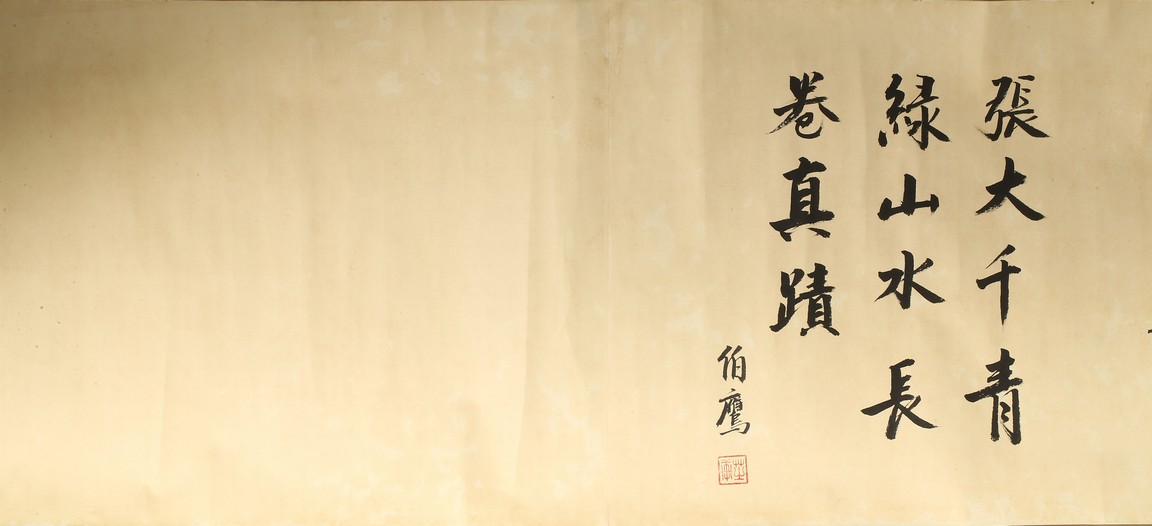 張大千青
綠山水長
卷真蹟
伯鷹